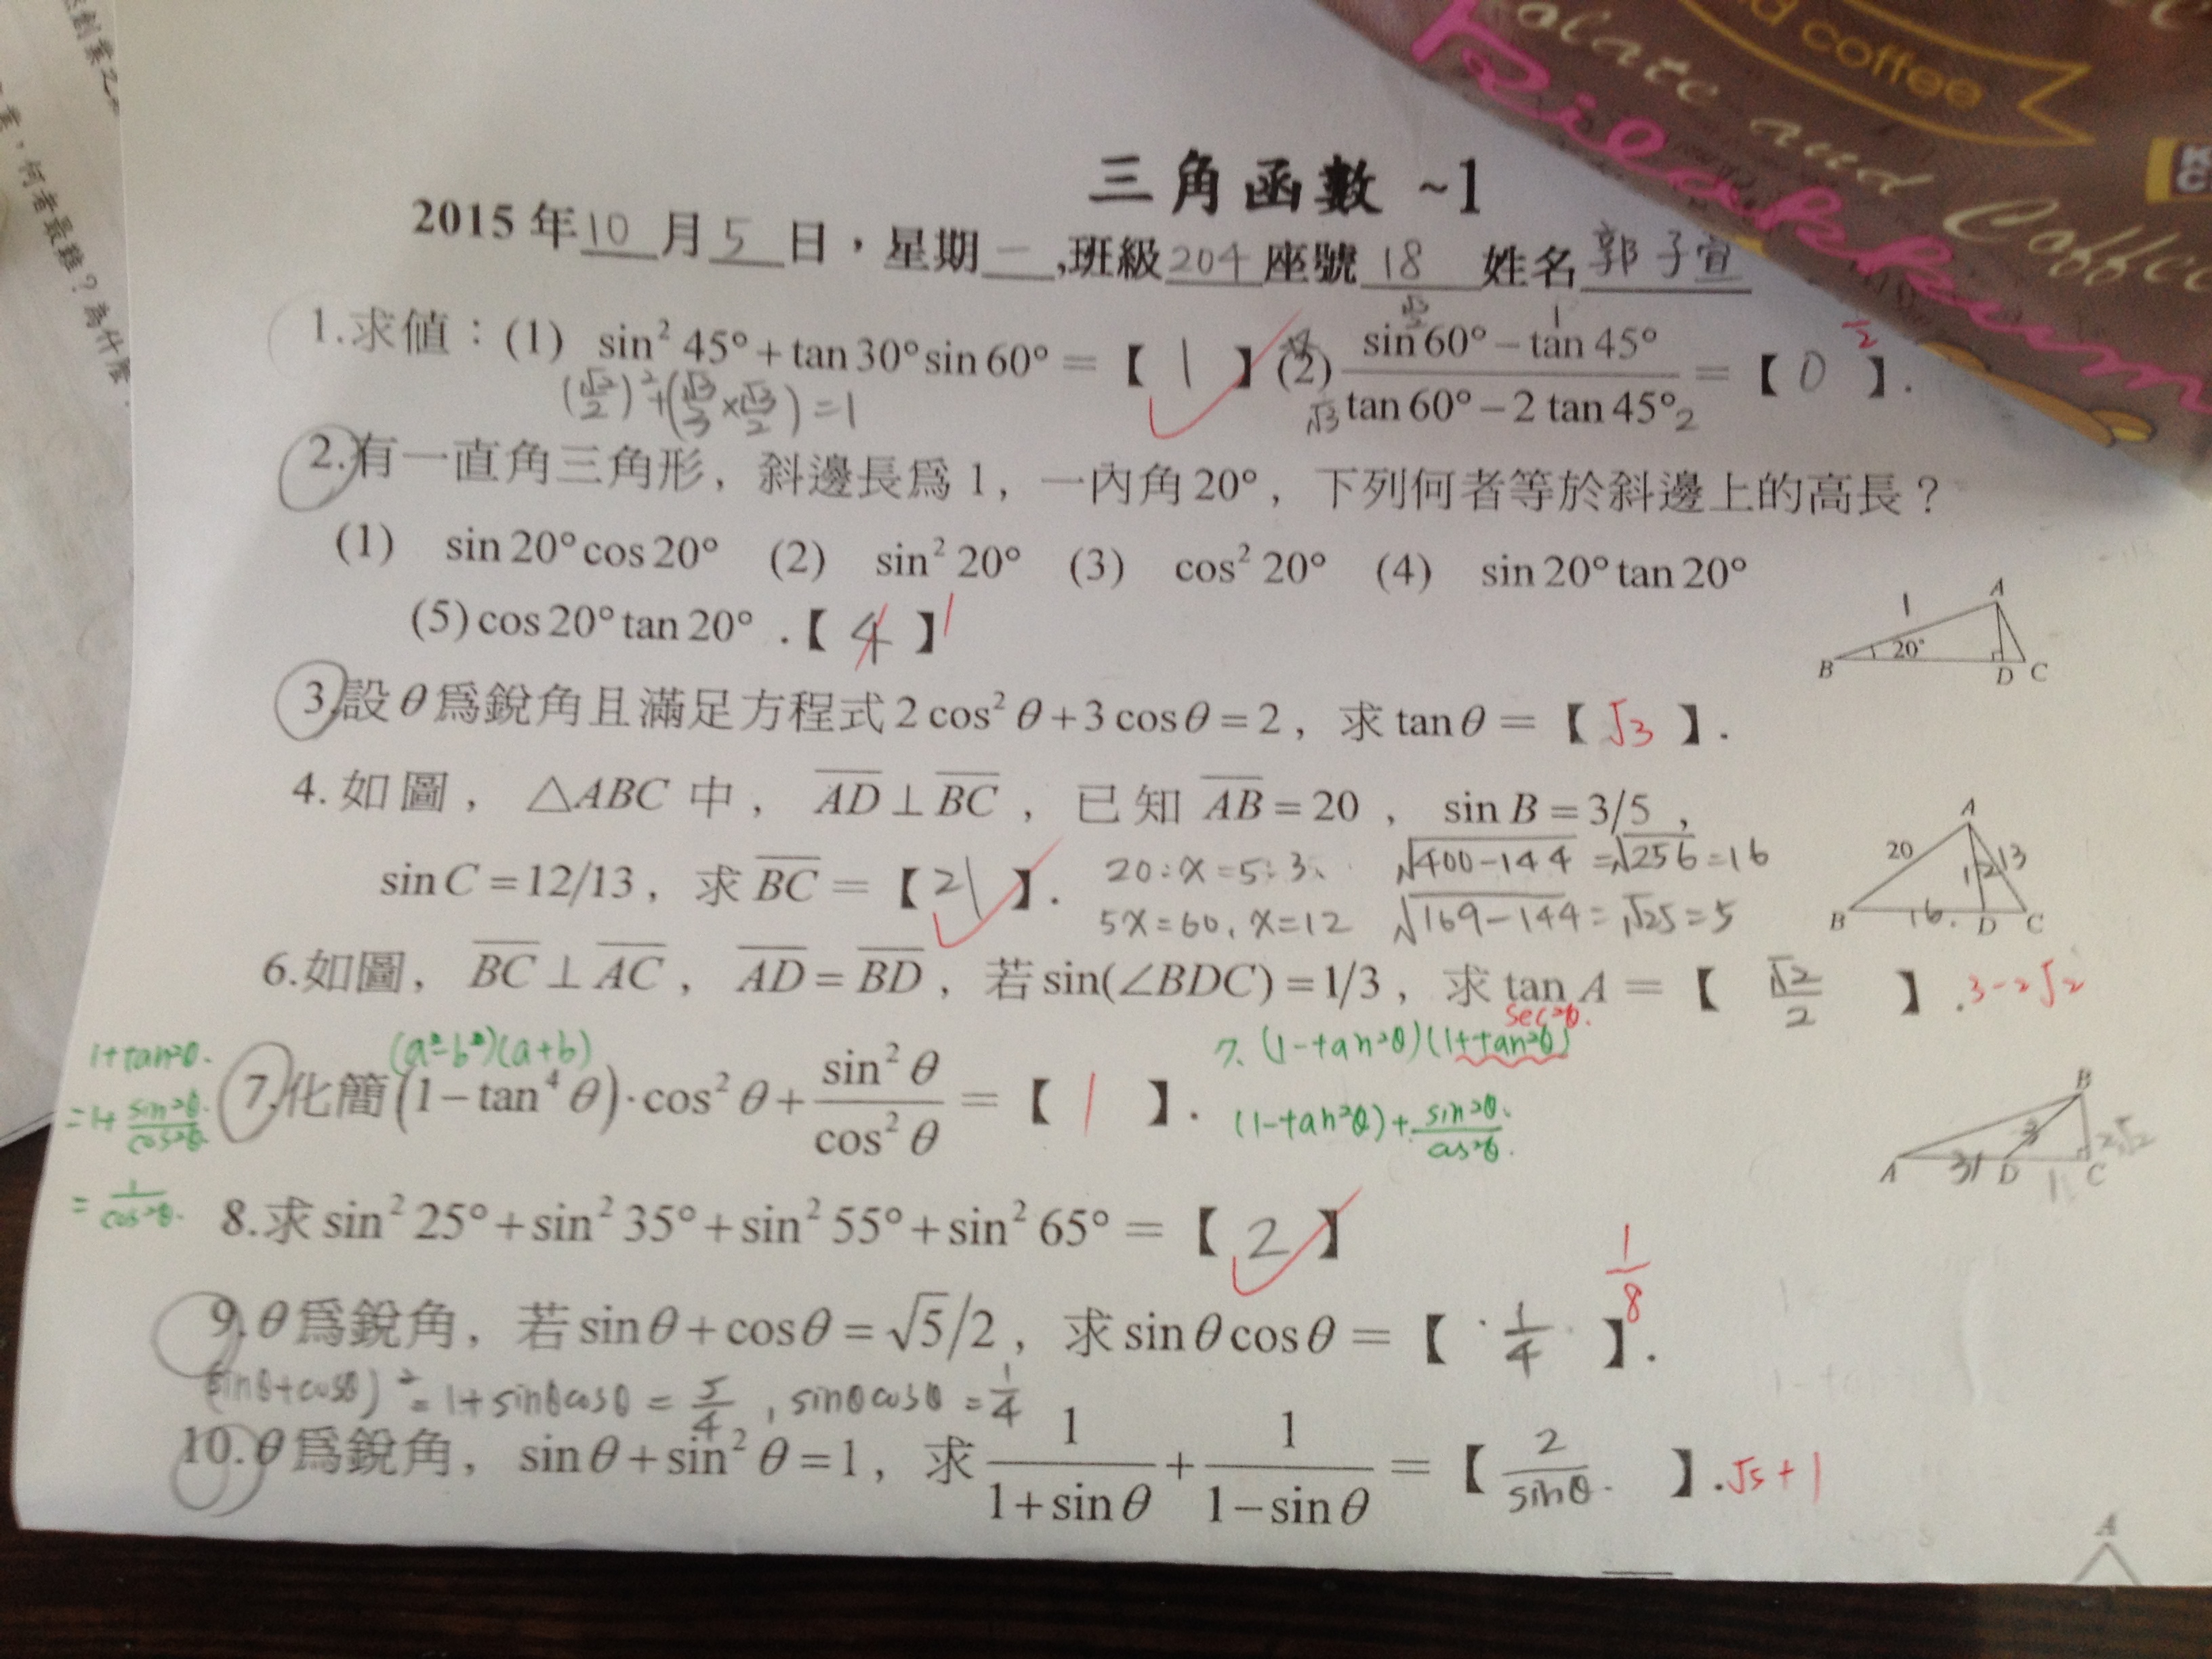 三角函數 ~1
2015年10月5日,星期一,班級204座號18 姓名郭子宣
1.求值:(1) sin² 45° + tan 30° sin 60° = 【 1 】 (2) (sin 60° − tan 45°)/(tan 60° − 2 tan 45°) = 【 0 】. 1/2
(√2/2)² + (√3/3 × √3/2) = 1
√3/2 1 √3 2
2.有一直角三角形, 斜邊長為 1, 一內角 20°, 下列何者等於斜邊上的高長?
(1) sin 20° cos 20° (2) sin² 20° (3) cos² 20° (4) sin 20° tan 20°
(5) cos 20° tan 20° .【 4 】 1
A 1 20° B D C
3.設 θ 為銳角且滿足方程式 2 cos² θ + 3 cos θ = 2, 求 tan θ = 【 √3 】.
4. 如圖, △ABC 中, AD ⊥ BC, 已知 AB = 20, sin B = 3/5,
sin C = 12/13, 求 BC = 【 21 】.
20:x=5:3、 √400-144 = √256 = 16
5x=60, x=12 √169-144 = √25 = 5
A 20 12 13 B 16. D C
6.如圖, BC ⊥ AC, AD = BD, 若 sin(∠BDC) = 1/3, 求 tan A = 【 √2/2 】. 3-2√2
sec²θ.
1+tan²θ. (a²-b²)(a+b) 7. (1-tan²θ)(1+tan²θ)
7.化簡 (1 − tan⁴ θ)·cos² θ + sin² θ/cos² θ = 【 1 】.
=1+ sin²θ/cos²θ. (1-tan²θ)+ sin²θ/cos²θ.
= 1/cos²θ.
B 3 2√2 A 31 D 1 C
8.求 sin² 25° + sin² 35° + sin² 55° + sin² 65° = 【 2 】
9.θ 為銳角, 若 sin θ + cos θ = √5/2, 求 sin θ cos θ = 【 1/4 】. 1/8
(sinθ+cosθ)² = 1+sinθcosθ = 5/4, sinθcosθ = 1/4
10.θ 為銳角, sin θ + sin² θ = 1, 求 1/(1+sin θ) + 1/(1−sin θ) = 【 2/sinθ. 】. √5+1
A
何者最難?為什麼
olate and Coffee
d coffee